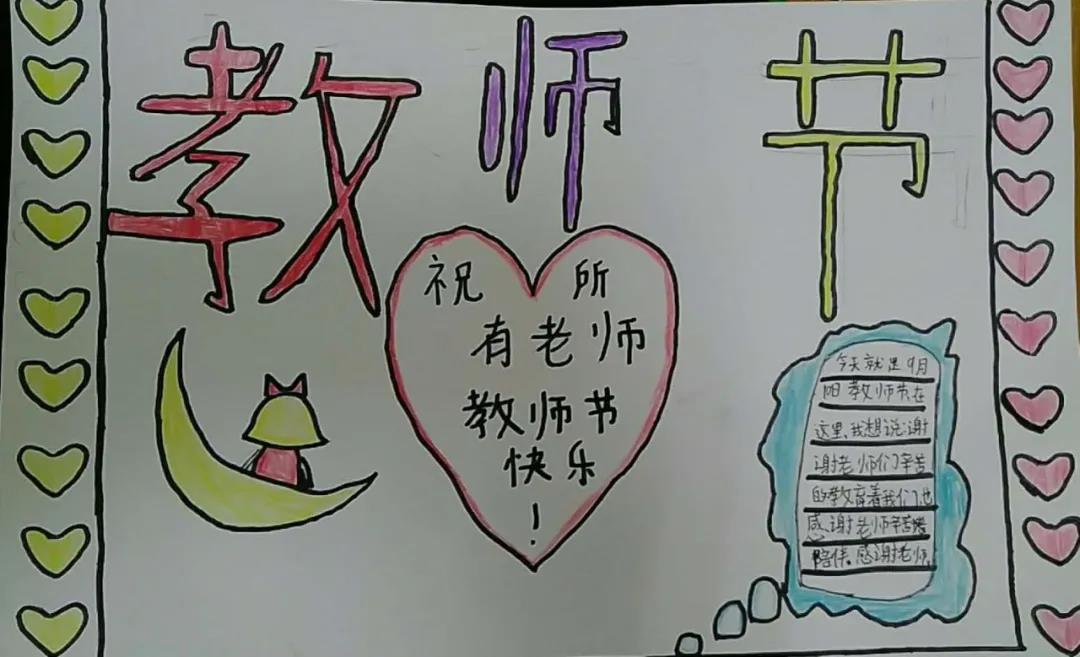 教师节
祝所
有老师
教师节
快乐
！
今天就是9月
教师节在
这里,我想说:谢
谢老师们辛苦
的教育着我们,也
感谢老师辛苦
陪伴,感谢老师,